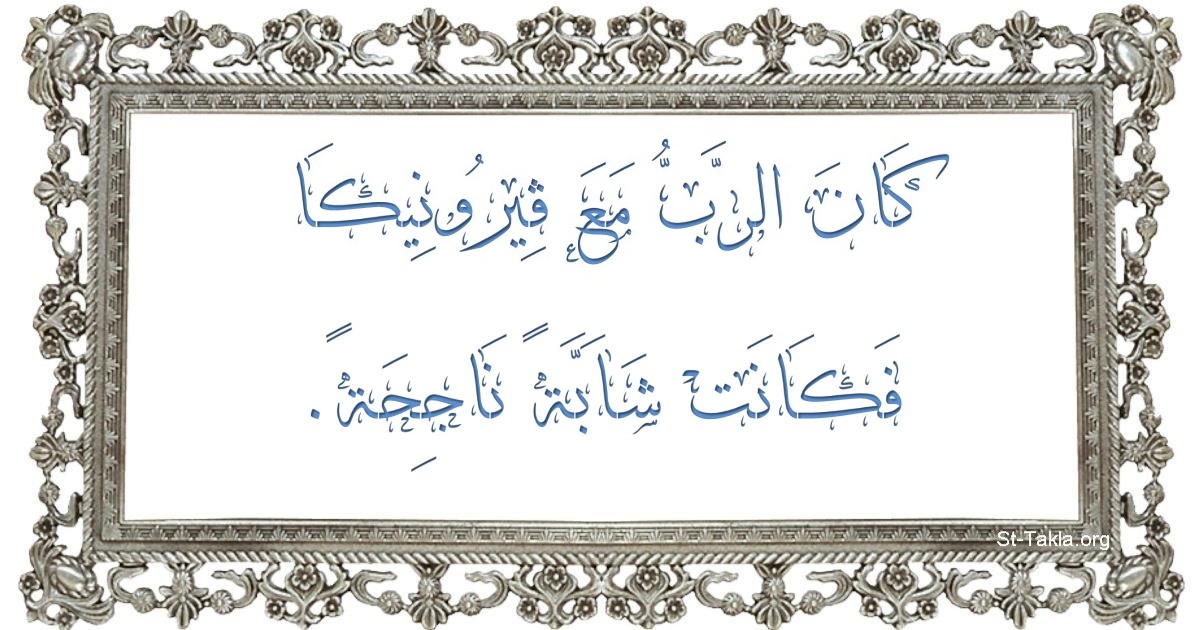 كَانَ الرَّبُّ مَعَ ڤِيرُونِيكَا
فَكَانَتْ شَابَّةً نَاجِحَةً.
St-Takla.org